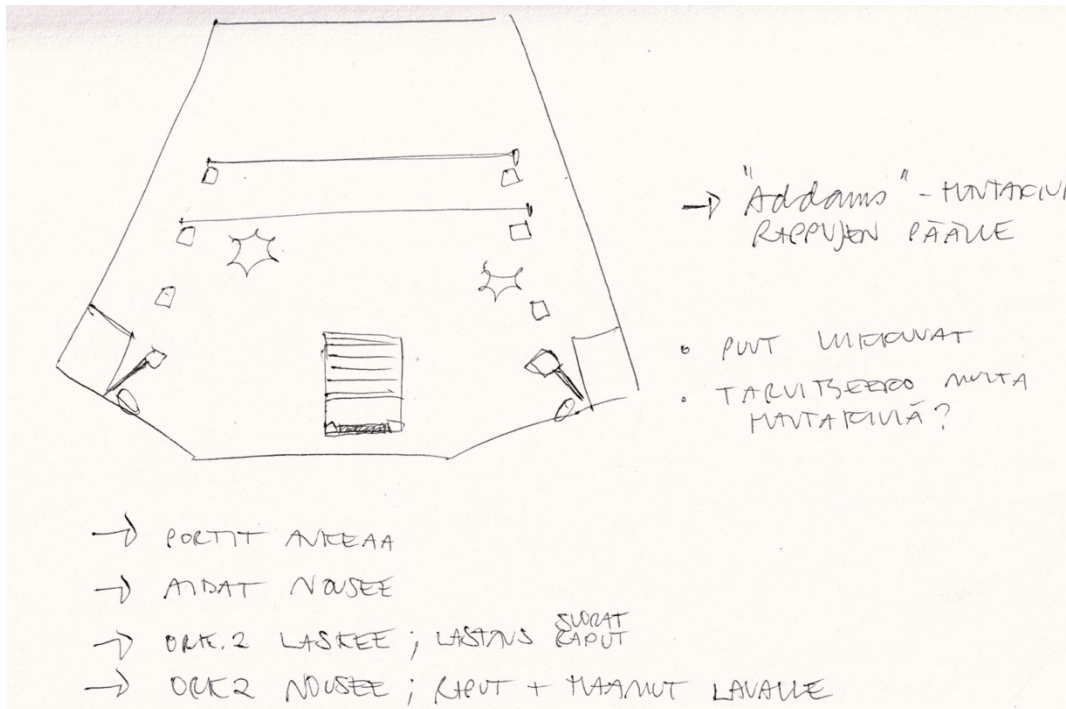 → "Addams" - HAUTAKIVI
RAPPUJEN PÄÄLLE
• PUUT LIIKKUVAT
• TARVITSEEKO MUITA
HAUTAKIVIÄ?
→ PORTIT AUKEAA
→ AIDAT NOUSEE
→ ORK.2 LASKEE ; LASTAUS SUORAT RAPUT
→ ORK2 NOUSEE ; RAPUT + HAAMUT LAVALLE